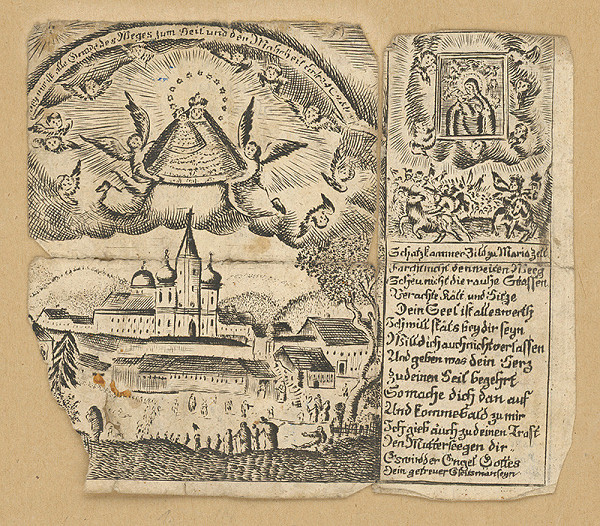 mir ist alle Genade des Weges zum Heil und der Wahrheit
Schatzkammer Bild zu Maria Zell
Farcht nicht den weiten Weeg
Scheu nicht die rauhe Strassen
Verachte Kält und Hitze
Dein Seel ist alles werth
Ich will stäts bey dir seyn
Will dich auch nicht verlassen
Und geben was dein Herz
Zu deinen Heil begehrt
So mache dich dan auf
Und komme bald zu mir
Ich gieb auch zu deinen Trost
Den Mutterseegen dir
Es wird der Engel Gottes
Dein getreuer Gleitsman seyn